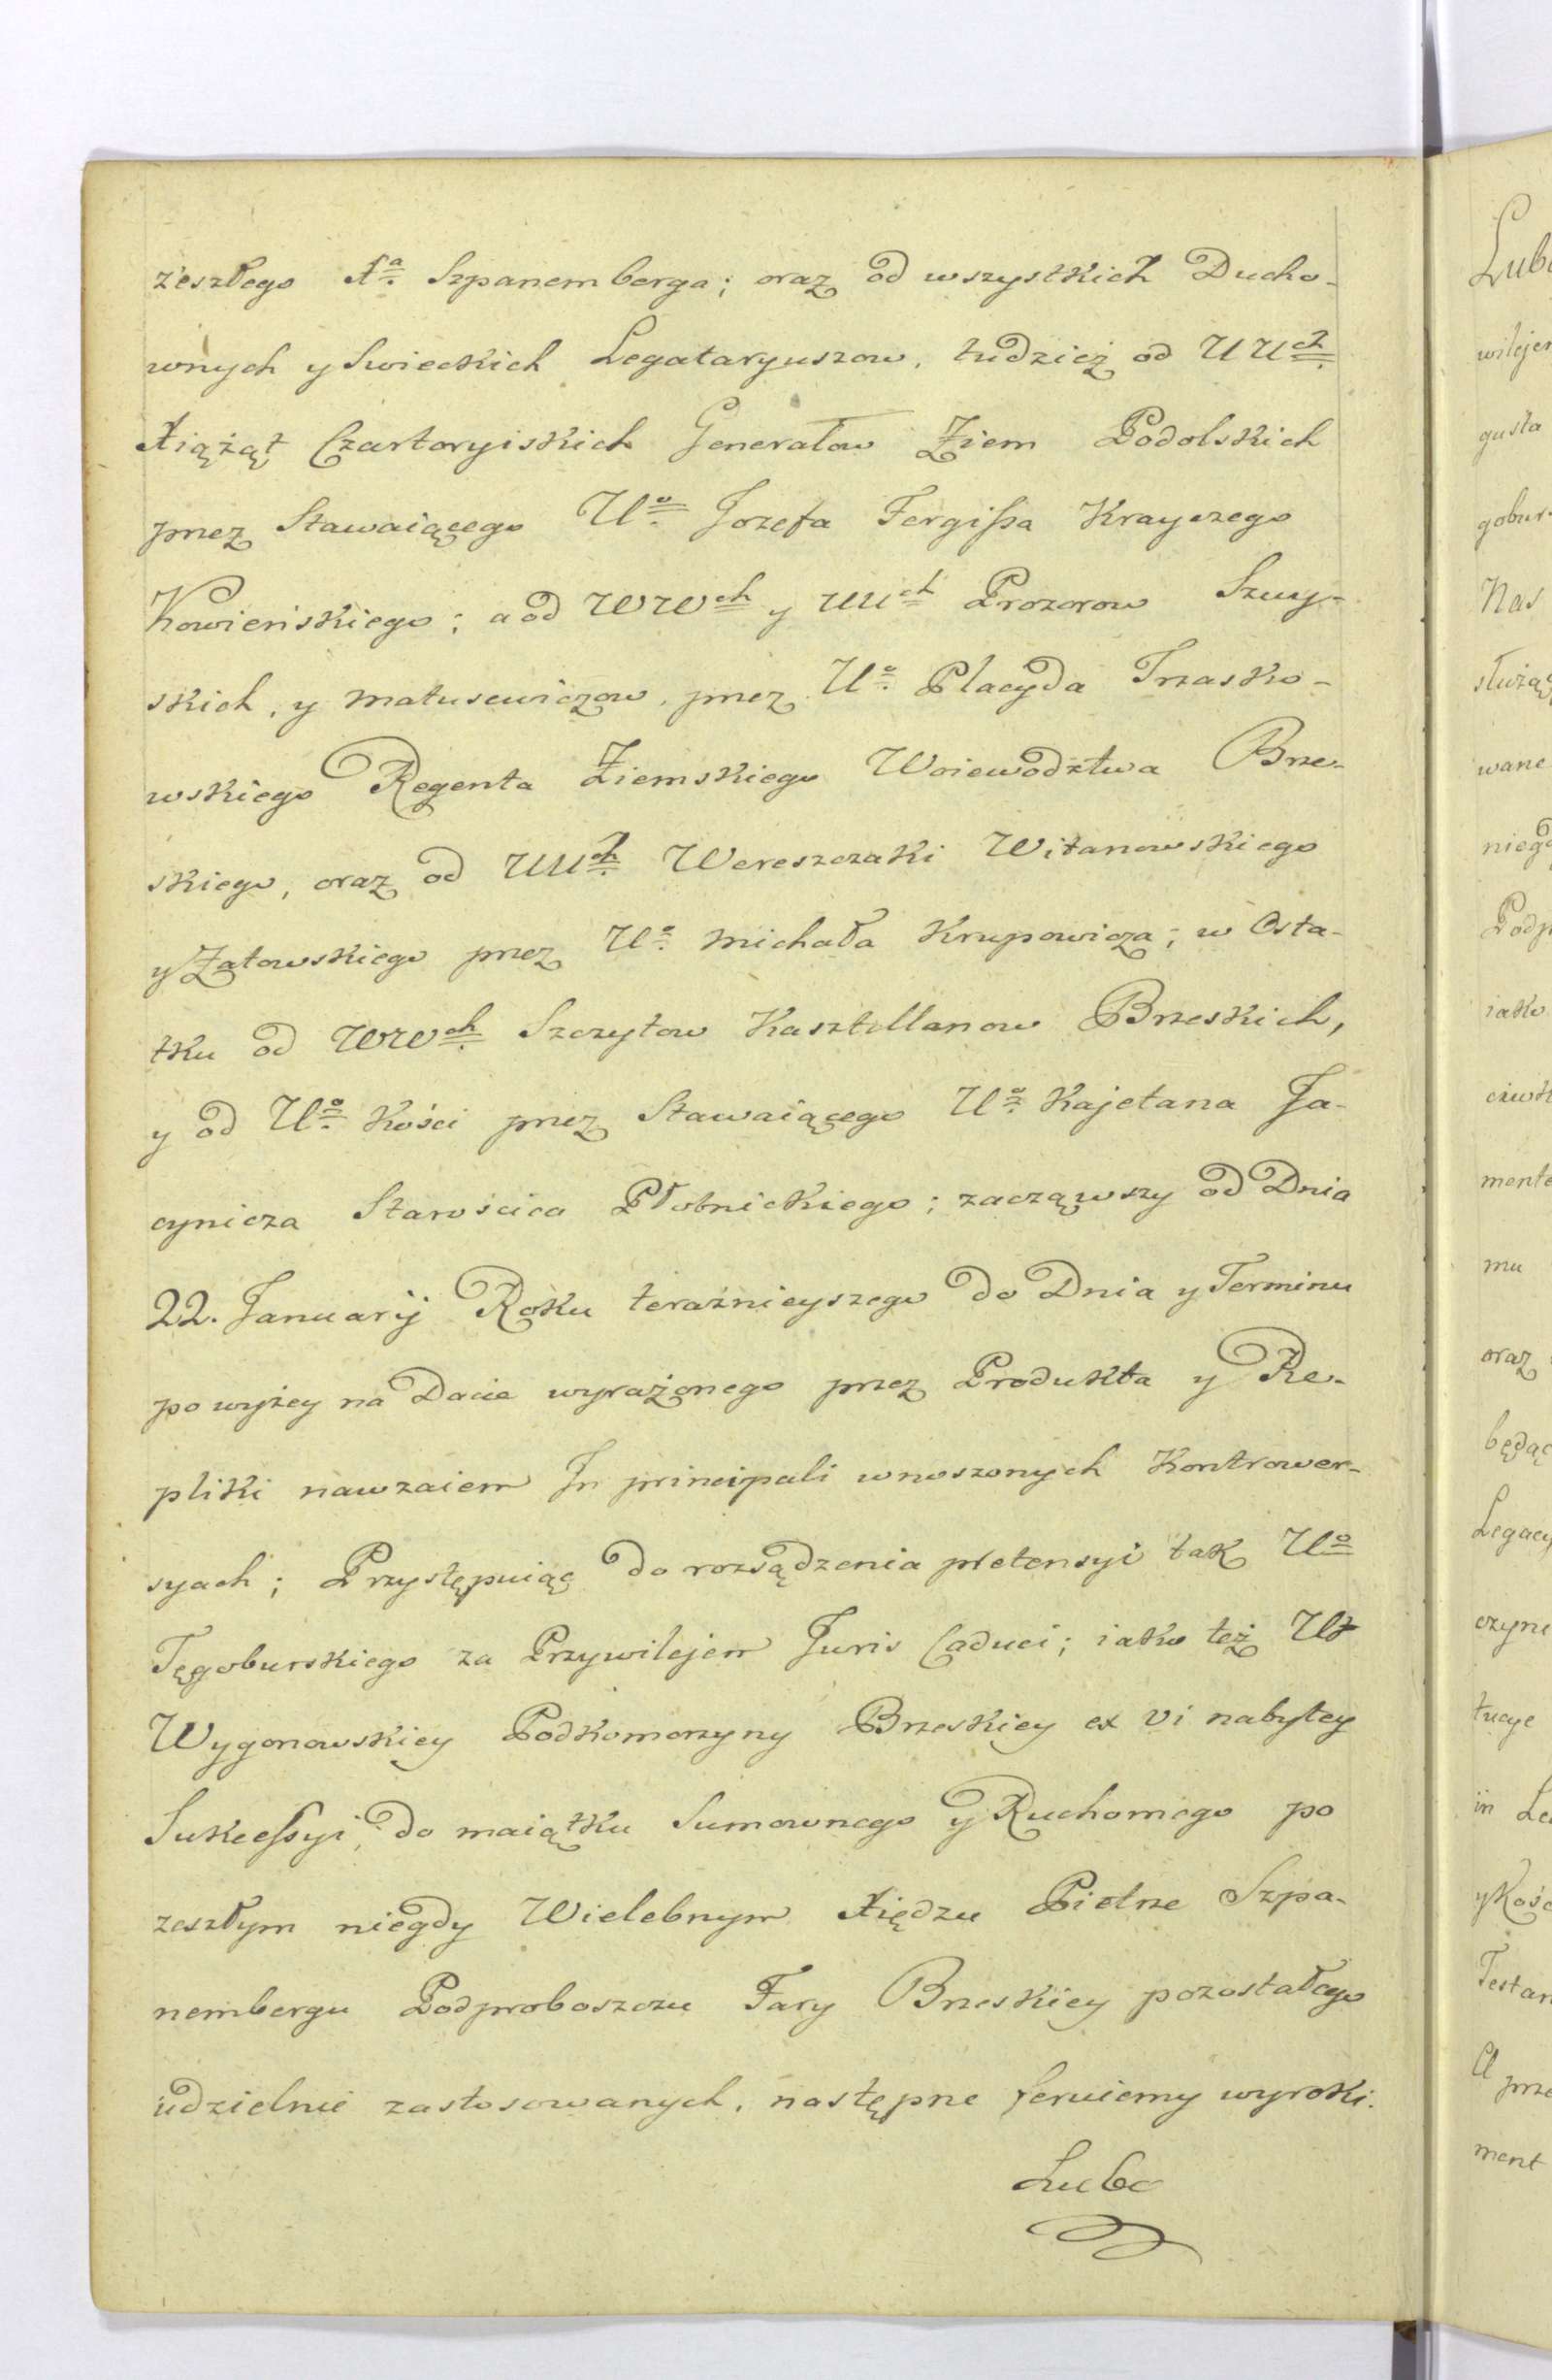 zeszłego Xa. Szpanemberga; oraz od wszystkich Ducho-
wnych y Swieckich Legataryuszow, tudzież od UUch.
Xiążąt Czartoryiskich Generałow Ziem Podolskich
przez Stawaiącego Uo. Jozefa Fergissa Krayczego
Kowieńskiego; a od WWch y UUch Prozorow Szuy-
skich, y Matusewiczow, przez Uo. Placyda Trzasko-
wskiego Regenta Ziemskiego Woiewodztwa Brze-
skiego, oraz od UUch. Wereszczaki Witanowskiego
y Załowskiego przez Uo. Michała Krupowicza; w Osta-
tku od WWch. Szczytow Kasztellanow Brzeskich,
y od Uo. Kości przez Stawaiącego Uo. Kajetana Ja-
cynicza Starościca Płotnickiego; zacząwszy od Dnia
22. Januarij Roku teraznieyszego do Dnia y Terminu
powyżey na Dacie wyrażonego przez Produkta y Re-
pliki nawzaiem In principali wnoszonych Kontrower-
syach; Przystępuiąc do rozsądzenia pretensyi tak Uo
Tęgoburskiego za Przywilejem Juris Caduci; iako też Uy
Wygonowskiey Podkomorzyny Brzeskiey ex vi nabytey
Sukcessyi, do maiątku Summownego y Ruchomego po
zeszłym niegdy Wielebnym Xiędzu Piotrze Szpa-
nembergu Podproboszczu Fary Brzeskiey pozostałego
udzielnie zastosowanych, następne feruiemy wyroki.
Lubo